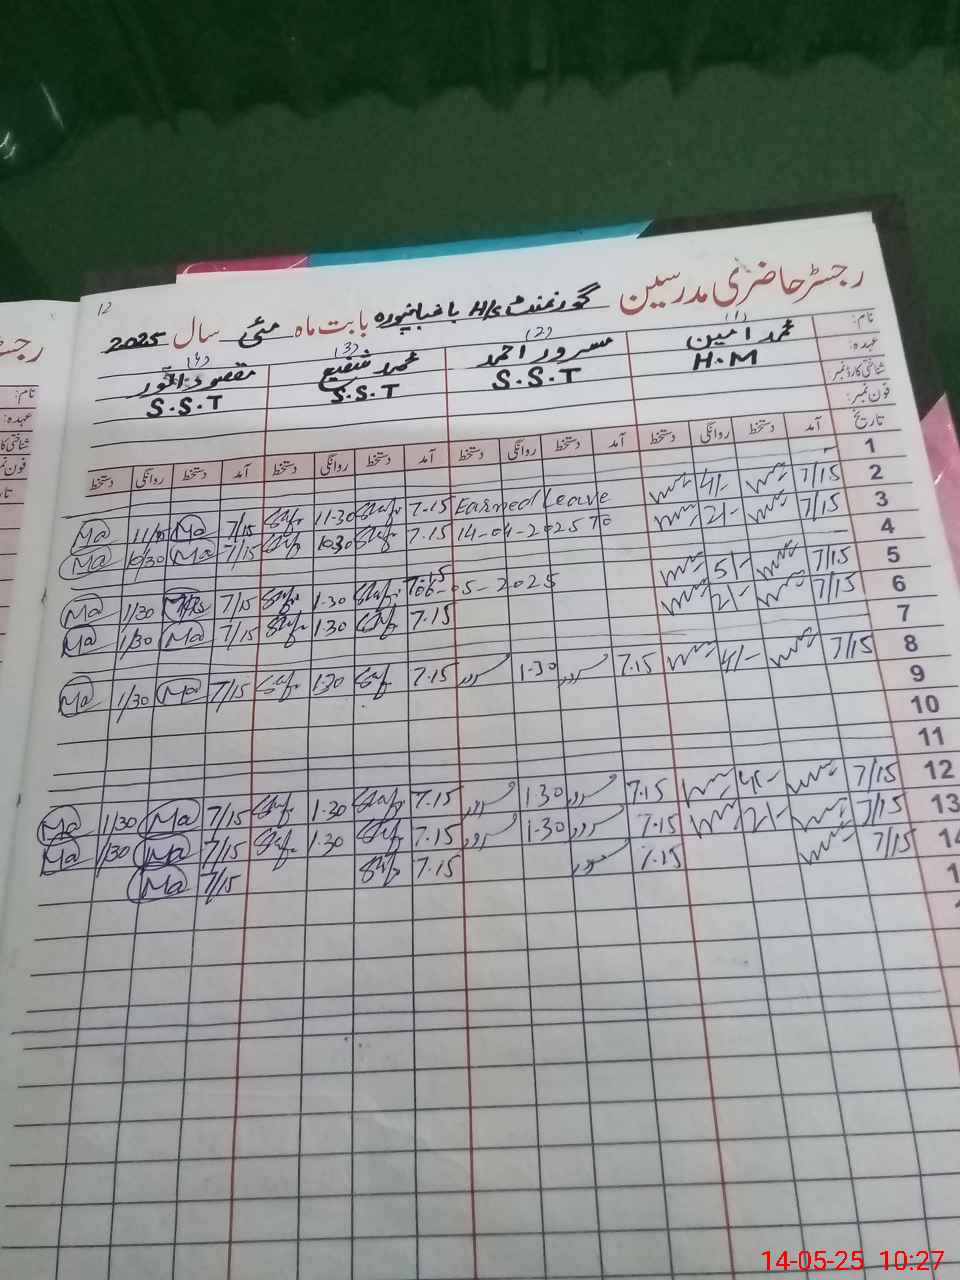 12
رجسٹر حاضری مدرسین گورنمنٹ H/S باغبانپورہ بابت ماہ مئی سال 2025
نام: (1) محمد امین (2) مسرور احمد (3) محمد شفیع (4) مقصود انور
عہدہ: H.M S.S.T S.S.T S.S.T
شناختی کارڈ نمبر:
فون نمبر:
تاریخ آمد دستخط روانگی دستخط آمد دستخط روانگی دستخط آمد دستخط روانگی دستخط آمد دستخط روانگی دستخط
1
2 7/15 4/- Earned Leave 7.15 11-30 7/15 Ma Ma
3 7/15 2/- 14-04-2025 To 7.15 1030 7/15 Ma 10/30 Ma
4
5 7/15 5/- 06-05-2025 1-30 7/15 1/30 Ma
6 7/15 2/- 7.15 1-30 7/15 Ma 1/30 Ma
7
8 7/15 4/- 7.15 مسرور 1-30 مسرور 7.15 1-30 7/15 Ma 1/30 Ma
9
10
11
12 7/15 7.15 مسرور 1-30 مسرور 7.15 1-30 7/15 Ma 1/30 Ma
13 7/15 2/- 7.15 مسرور 1-30 مسرور 7.15 1-30 7/15 Ma 1/30 Ma
14 7/15 7.15 مسرور 7.15 7/15 Ma
رجسٹ
نام:
عہدہ:
شناختی کا
فون نمبر
تا
14-05-25 10:27